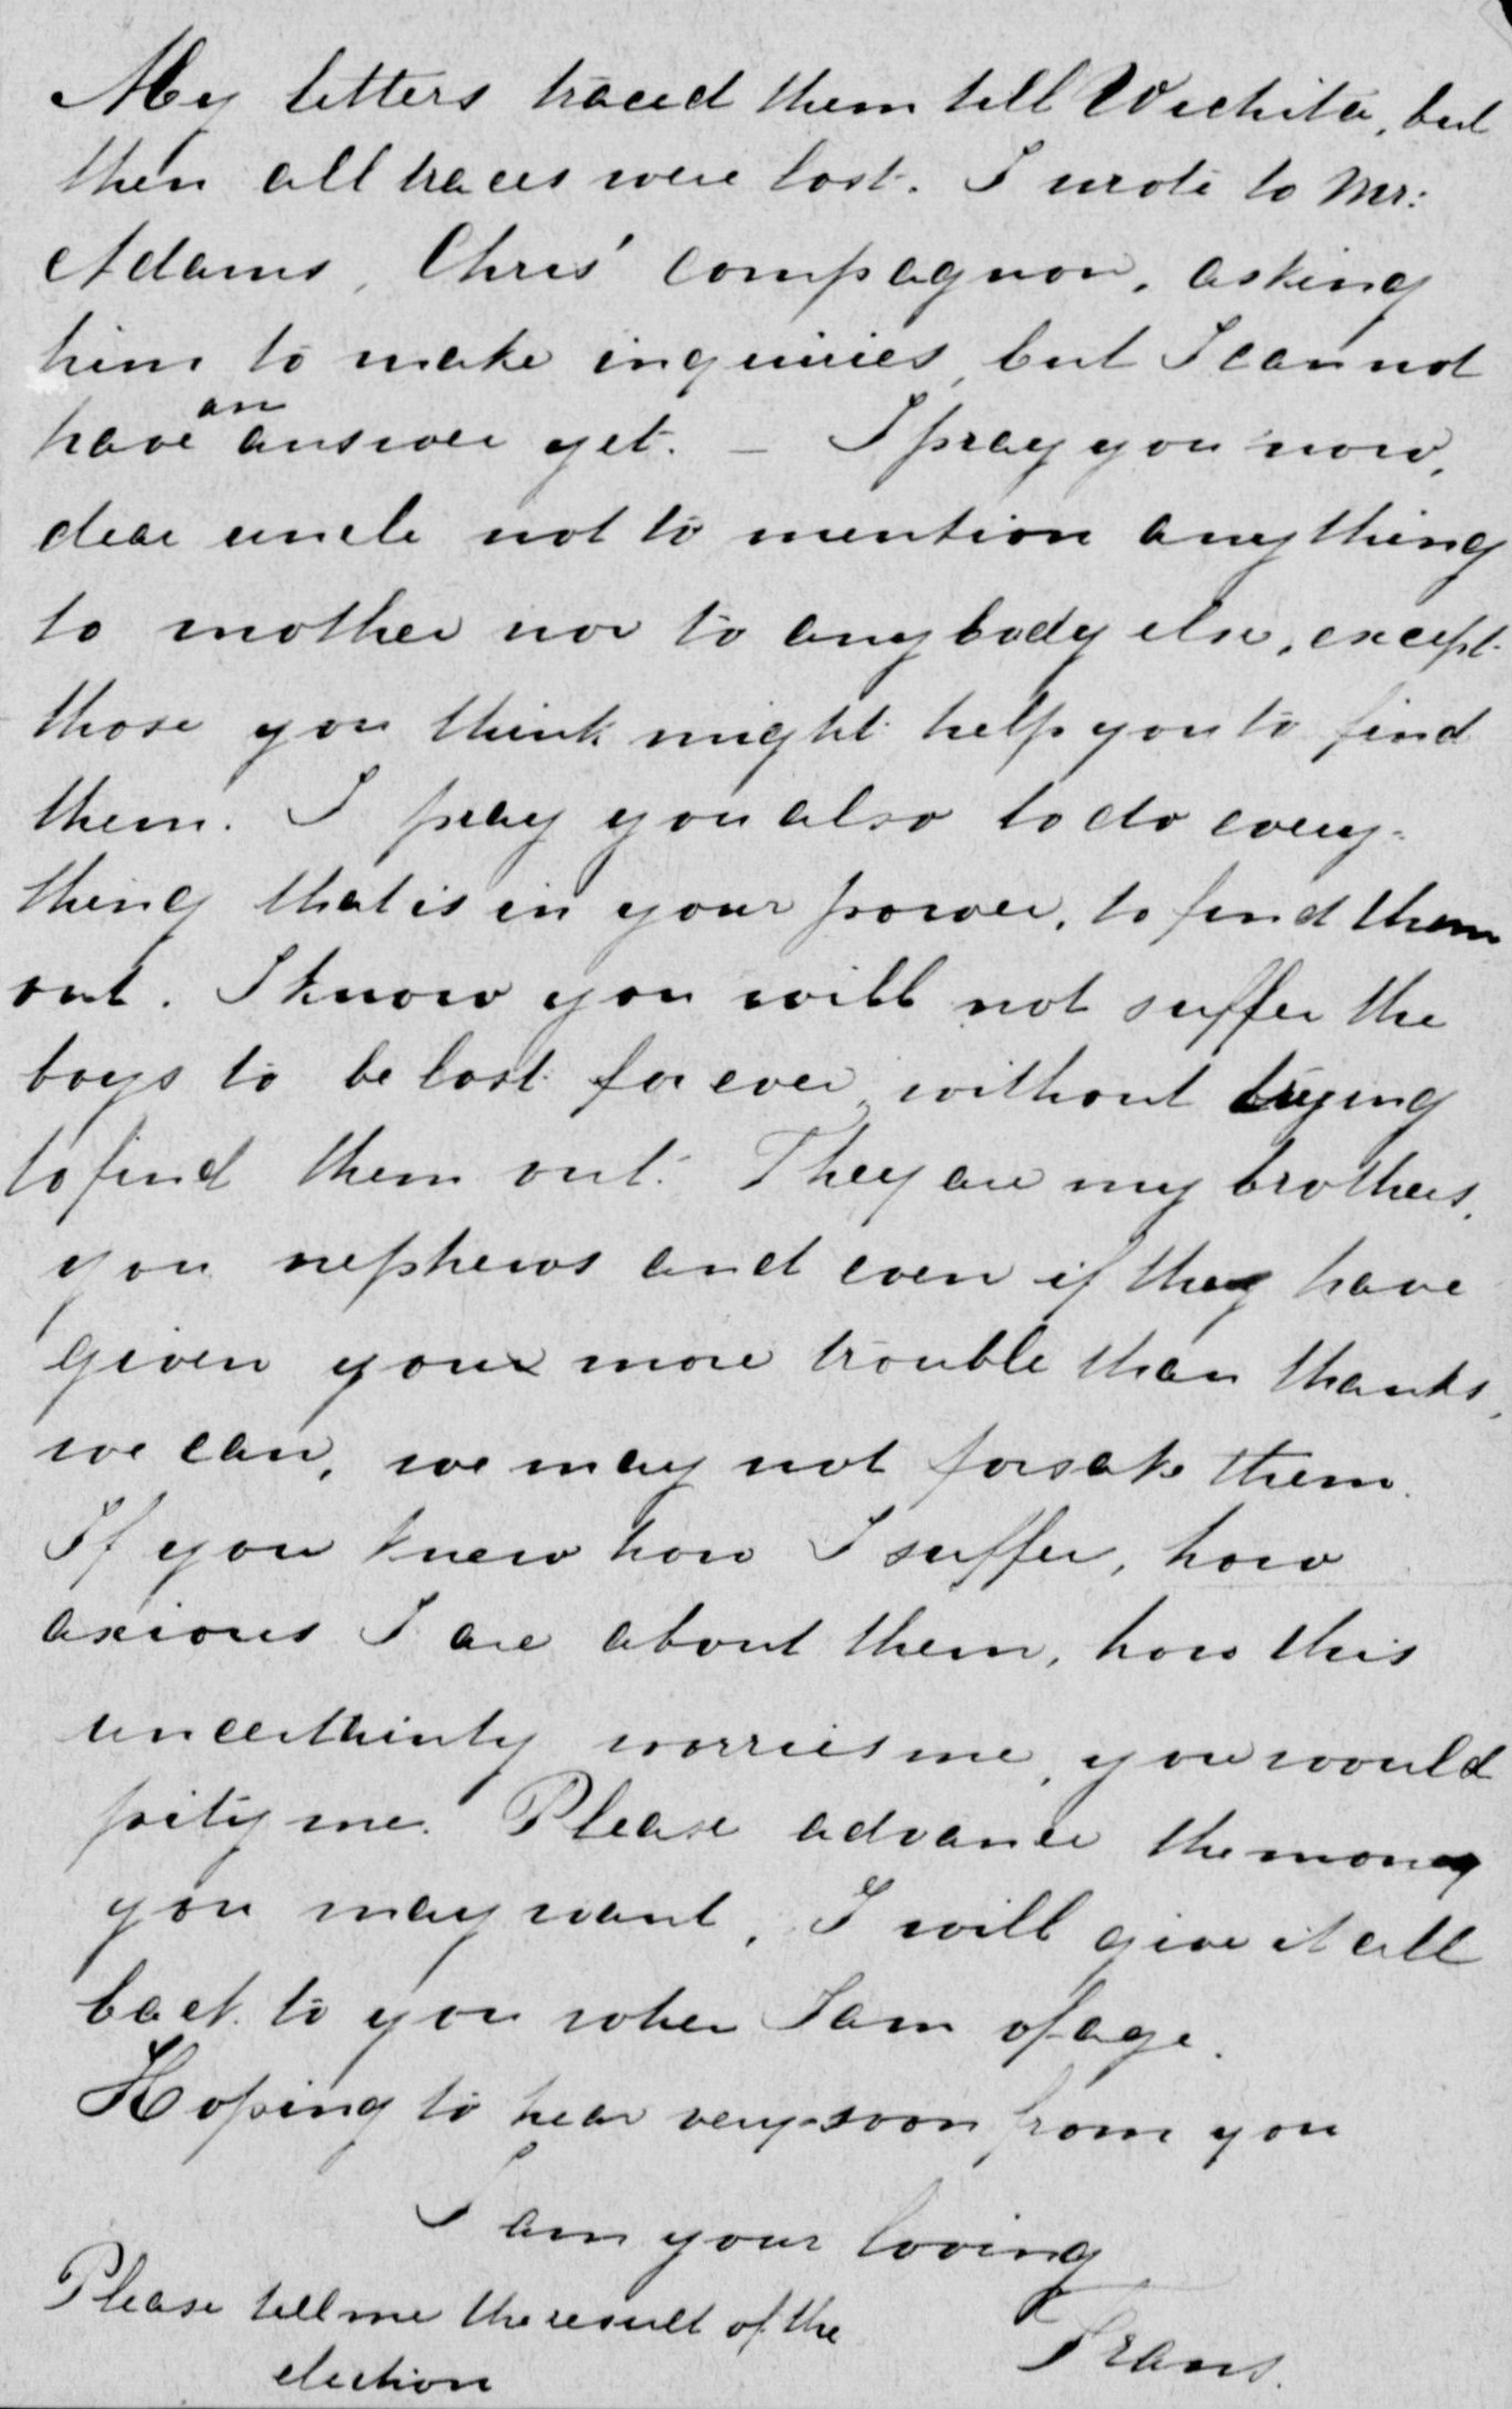 My letters traced them till Wichita, but
then all traces were lost. I wrote to Mr:
Adams, Chris' compagnon, asking
him to make inquiries, but I cannot
have an answer yet. — I pray you now,
dear uncle not to mention anything
to mother nor to anybody else, except
those you think might help you to find
them. I pray you also to do every-
thing that is in your power, to find them
out. I know you will not suffer the
boys to be lost for ever, without trying
to find them out. They are my brothers,
you nephews and even if they have
given you more trouble than thanks,
we can, we may not forsake them.
If you knew how I suffer, how
axious I are about them, how this
uncerthinty worries me, you would
pity me. Please advance the money
you may want, I will give it all
back to you when I am of age.
Hoping to hear very soon from you
I am your loving
Frans.
Please tell me the result of the
election